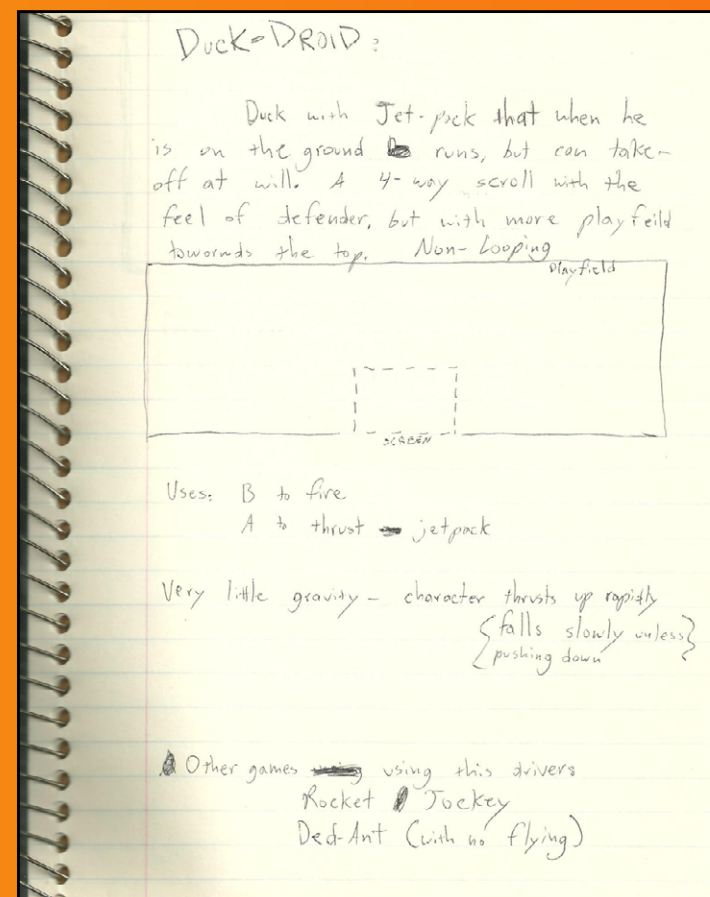 Duck-DROID:
Duck with Jet-pack that when he
is on the ground runs, but can take-
off at will. A 4-way scroll with the
feel of defender, but with more playfeild
towornds the top. Non-Looping
Playfield
SCREEN
Uses: B to fire
A to thrust jetpack
Very little gravity - character thrusts up rapidly
{falls slowly unless}
{pushing down
Other games using this drivers
Rocket Jockey
Ded-Ant (with no flying)